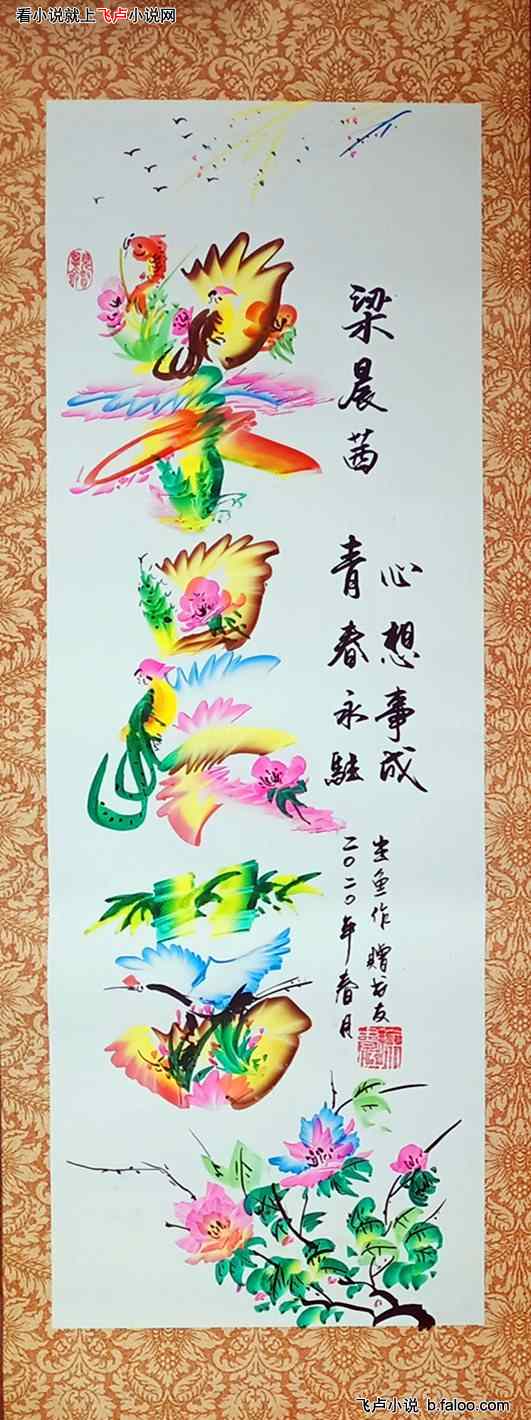 看小说就上飞卢小说网
梁晨茜
梁晨茜
心想事成
青春永驻
生鱼作 赠书友
二〇二〇年春月
飞卢小说 b.faloo.com